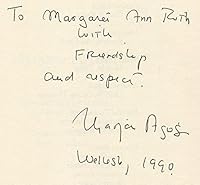 To Margaret Ann Roth
with
Friendship
and respect.
Marjorie Agosín
Wellesley, 1990